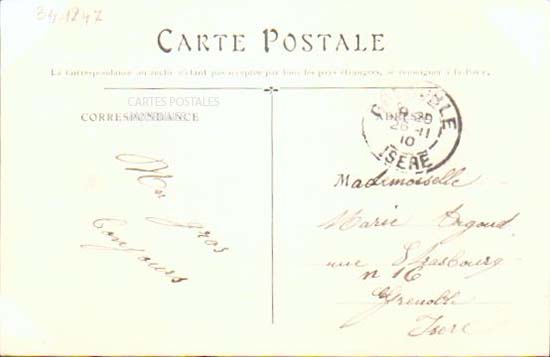 34-1247
CARTE POSTALE
La Correspondance au recto n'étant pas acceptée par tous les pays étrangers, se renseigner à la Poste.
CARTES POSTALES
CORRESPONDANCE
ADRESSE
GRENOBLE
8 20
26 - 11
10
ISERE
Un gros
Mademoiselle
Marie Argoud
rue Strasbourg
n 16
Grenoble
Isere